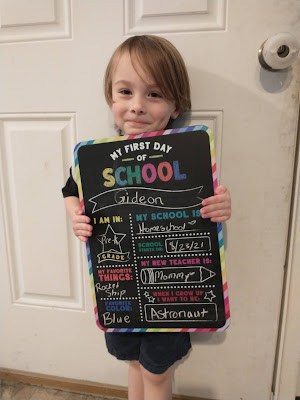 MY FIRST DAY
OF
SCHOOL
Gideon
I AM IN:
Pre-K
GRADE
MY FAVORITE
THINGS:
Rocket
Ship
FAVORITE
COLOR:
Blue
MY SCHOOL IS:
Homeschool
SCHOOL
STARTS ON:
8/23/21
MY NEW TEACHER IS:
Mommy
WHEN I GROW UP
I WANT TO BE:
Astronaut